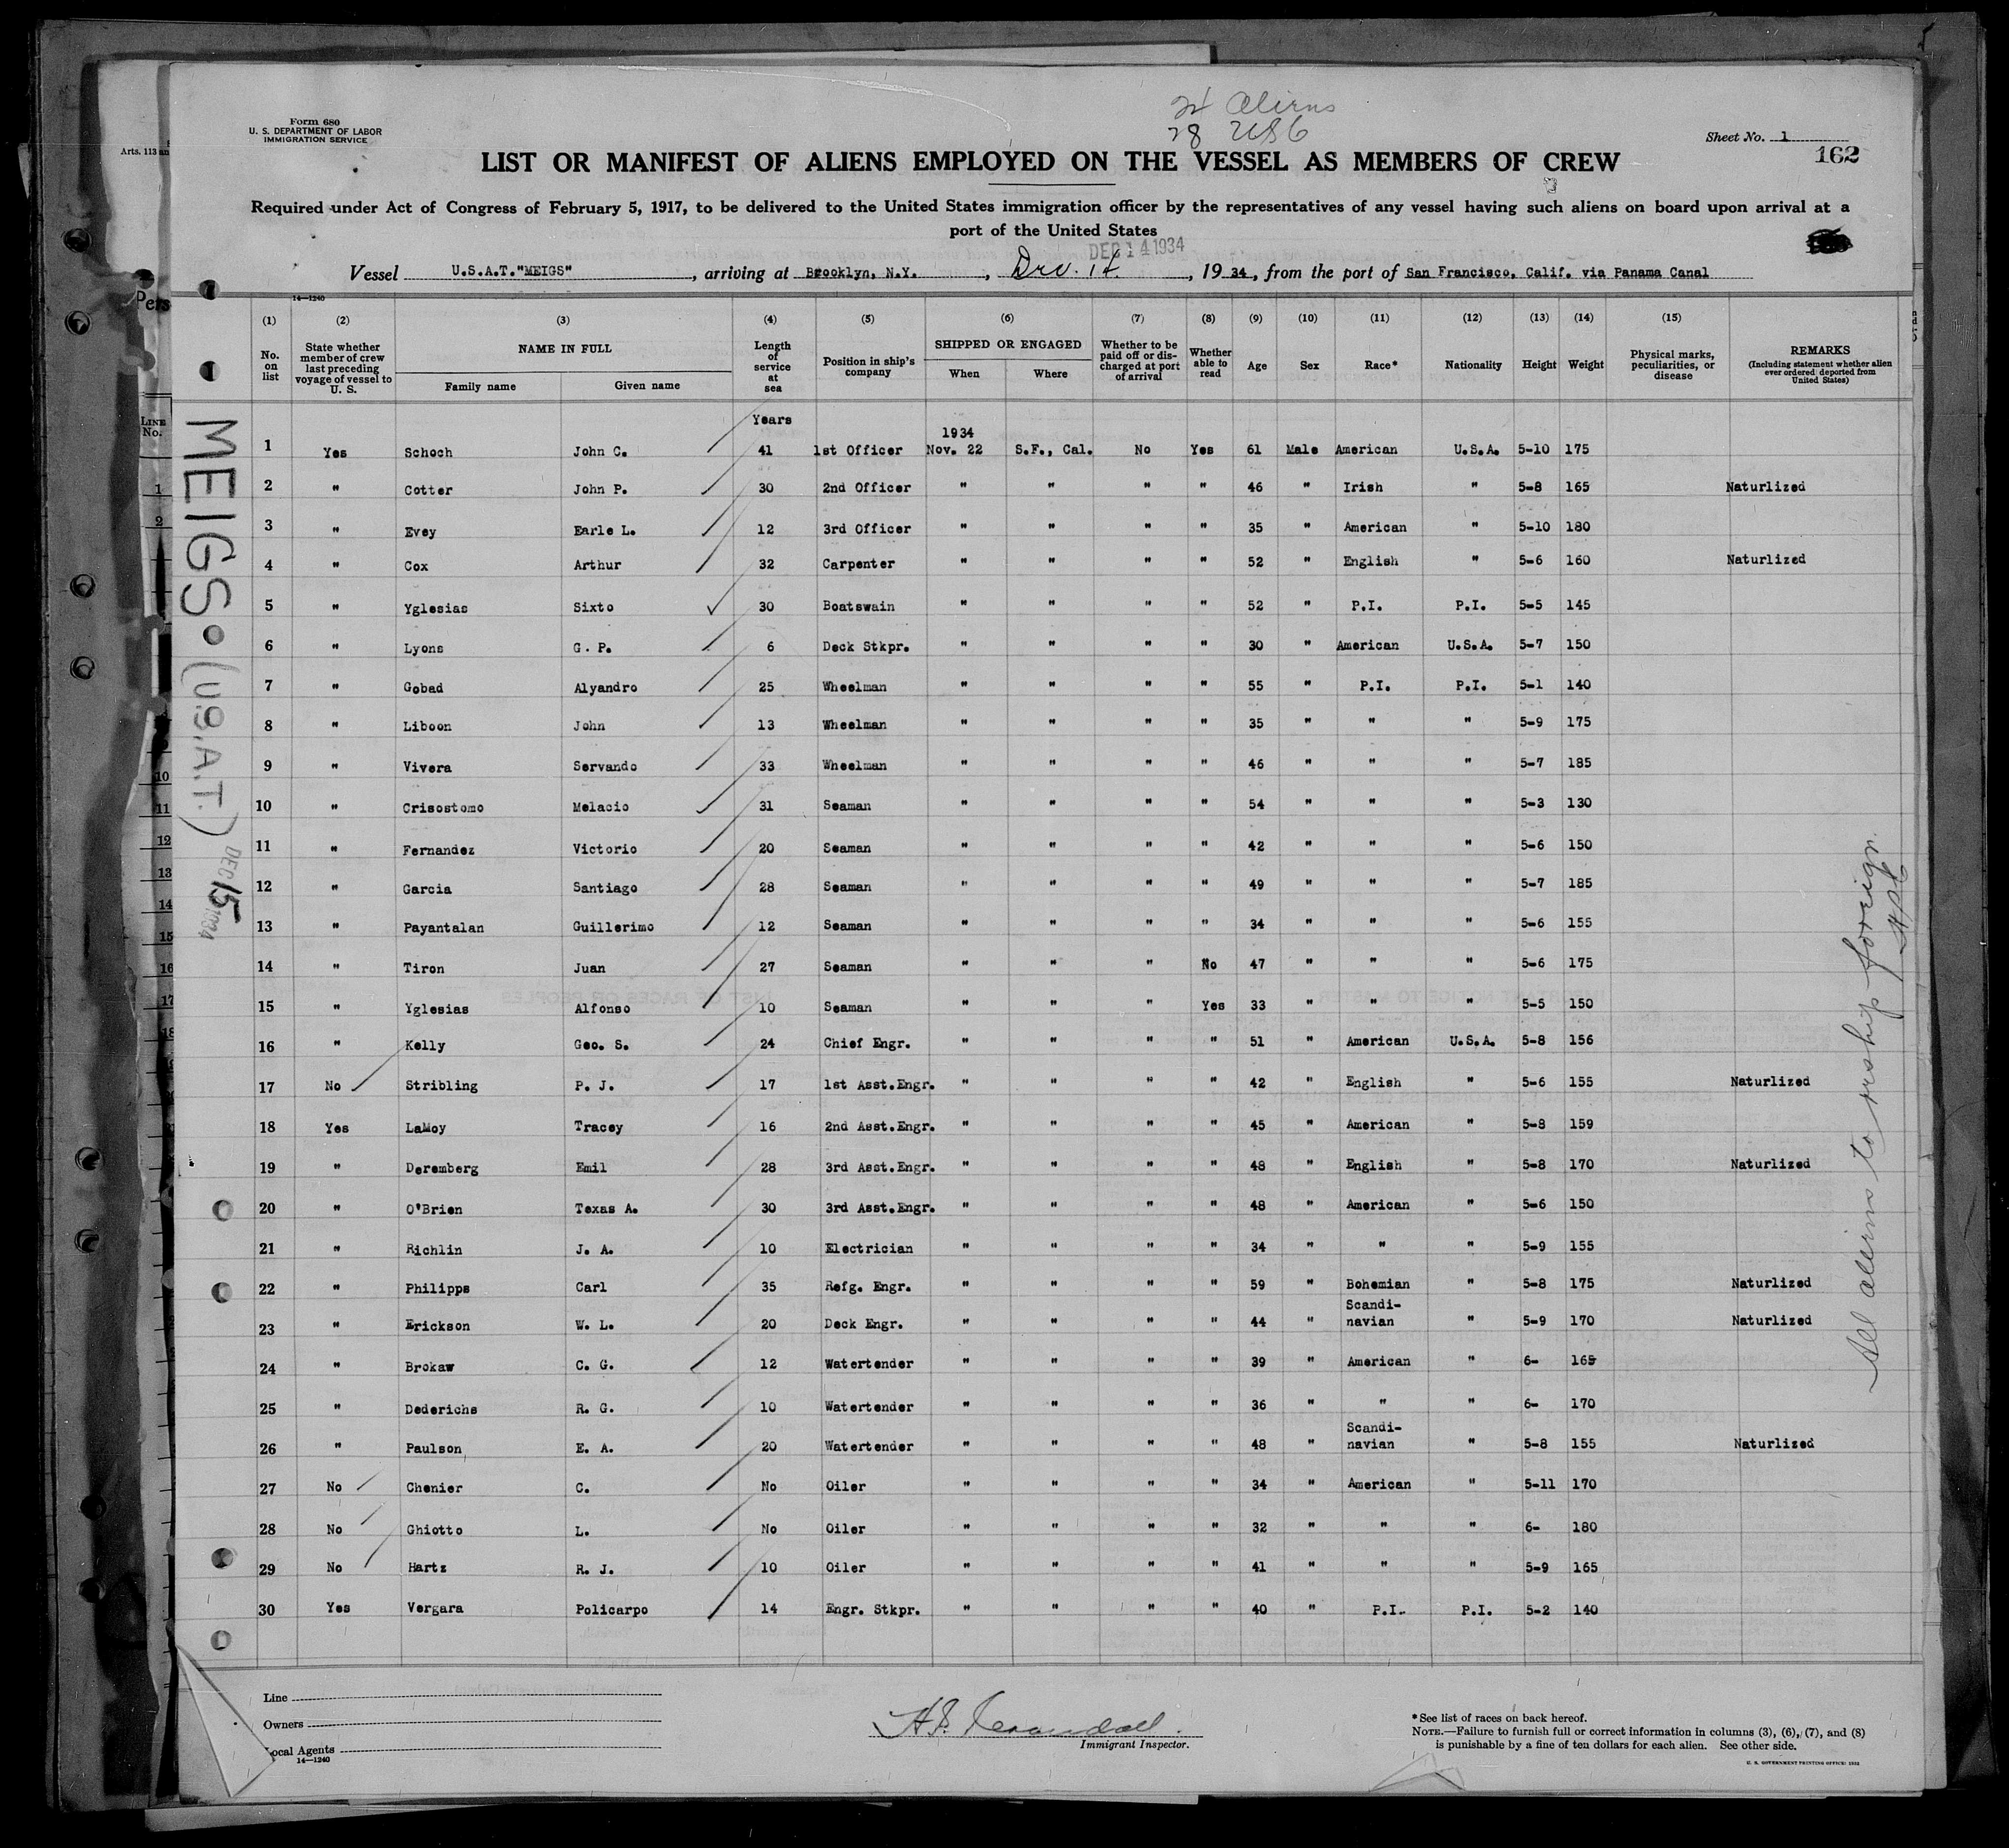 Form 680
U. S. DEPARTMENT OF LABOR
IMMIGRATION SERVICE
Arts. 113 an
Aliens
28 USC
Sheet No. 1
162
LIST OR MANIFEST OF ALIENS EMPLOYED ON THE VESSEL AS MEMBERS OF CREW
Required under Act of Congress of February 5, 1917, to be delivered to the United States immigration officer by the representatives of any vessel having such aliens on board upon arrival at a
port of the United States
DEC 14 1934
Vessel U.S.A.T."MEIGS", arriving at Brooklyn, N.Y., Dec. 14, 1934, from the port of San Francisco, Calif. via Panama Canal
14—1240
(1) (2) (3) (4) (5) (6) (7) (8) (9) (10) (11) (12) (13) (14) (15)
No. on list | State whether member of crew last preceding voyage of vessel to U. S. | NAME IN FULL | Family name | Given name | Length of service at sea | Position in ship's company | SHIPPED OR ENGAGED | When | Where | Whether to be paid off or discharged at port of arrival | Whether able to read | Age | Sex | Race* | Nationality | Height | Weight | Physical marks, peculiarities, or disease | REMARKS (Including statement whether alien ever ordered deported from United States)
Years
1934
1 Yes Schoch John C. 41 1st Officer Nov. 22 S.F., Cal. No Yes 61 Male American U.S.A. 5-10 175
2 " Cotter John P. 30 2nd Officer " " " " 46 " Irish " 5-8 165 Naturlized
3 " Evey Earle L. 12 3rd Officer " " " " 35 " American " 5-10 180
4 " Cox Arthur 32 Carpenter " " " " 52 " English " 5-6 160 Naturlized
5 " Yglesias Sixto 30 Boatswain " " " " 52 " P.I. P.I. 5-5 145
6 " Lyons G. P. 6 Deck Stkpr. " " " " 30 " American U.S.A. 5-7 150
7 " Gobad Alyandro 25 Wheelman " " " " 55 " P.I. P.I. 5-1 140
8 " Liboon John 13 Wheelman " " " " 35 " " " 5-9 175
9 " Vivera Servando 33 Wheelman " " " " 46 " " " 5-7 185
10 " Crisostomo Melacio 31 Seaman " " " " 54 " " " 5-3 130
11 " Fernandez Victorio 20 Seaman " " " " 42 " " " 5-6 150
12 " Garcia Santiago 28 Seaman " " " " 49 " " " 5-7 185
13 " Payantalan Guillerimo 12 Seaman " " " " 34 " " " 5-6 155
14 " Tiron Juan 27 Seaman " " " No 47 " " " 5-6 175
15 " Yglesias Alfonso 10 Seaman " " " Yes 33 " " " 5-5 150
16 " Kelly Geo. S. 24 Chief Engr. " " " " 51 " American U.S.A. 5-8 156
17 No Stribling P. J. 17 1st Asst.Engr. " " " " 42 " English " 5-6 155 Naturlized
18 Yes LaMoy Tracey 16 2nd Asst.Engr. " " " " 45 " American " 5-8 159
19 " Deremberg Emil 28 3rd Asst.Engr. " " " " 48 " English " 5-8 170 Naturlized
20 " O'Brien Texas A. 30 3rd Asst.Engr. " " " " 48 " American " 5-6 150
21 " Richlin J. A. 10 Electrician " " " " 34 " " " 5-9 155
22 " Philipps Carl 35 Refg. Engr. " " " " 59 " Bohemian " 5-8 175 Naturlized
23 " Erickson W. L. 20 Deck Engr. " " " " 44 " Scandi-navian " 5-9 170 Naturlized
24 " Brokaw C. G. 12 Watertender " " " " 39 " American " 6- 165
25 " Dederichs R. G. 10 Watertender " " " " 36 " " " 6- 170
26 " Paulson E. A. 20 Watertender " " " " 48 " Scandi-navian " 5-8 155 Naturlized
27 No Chenier C. No Oiler " " " " 34 " American " 5-11 170
28 No Ghiotto L. No Oiler " " " " 32 " " " 6- 180
29 No Hartz R. J. 10 Oiler " " " " 41 " " " 5-9 165
30 Yes Vergara Policarpo 14 Engr. Stkpr. " " " " 40 " P.I. P.I. 5-2 140
MEIGS (U.S.A.T.) DEC 15 1934
All aliens to reship foreign.
Line
Owners
Local Agents
14—1240
Immigrant Inspector.
*See list of races on back hereof.
NOTE.—Failure to furnish full or correct information in columns (3), (6), (7), and (8)
is punishable by a fine of ten dollars for each alien. See other side.
U. S. GOVERNMENT PRINTING OFFICE: 1932